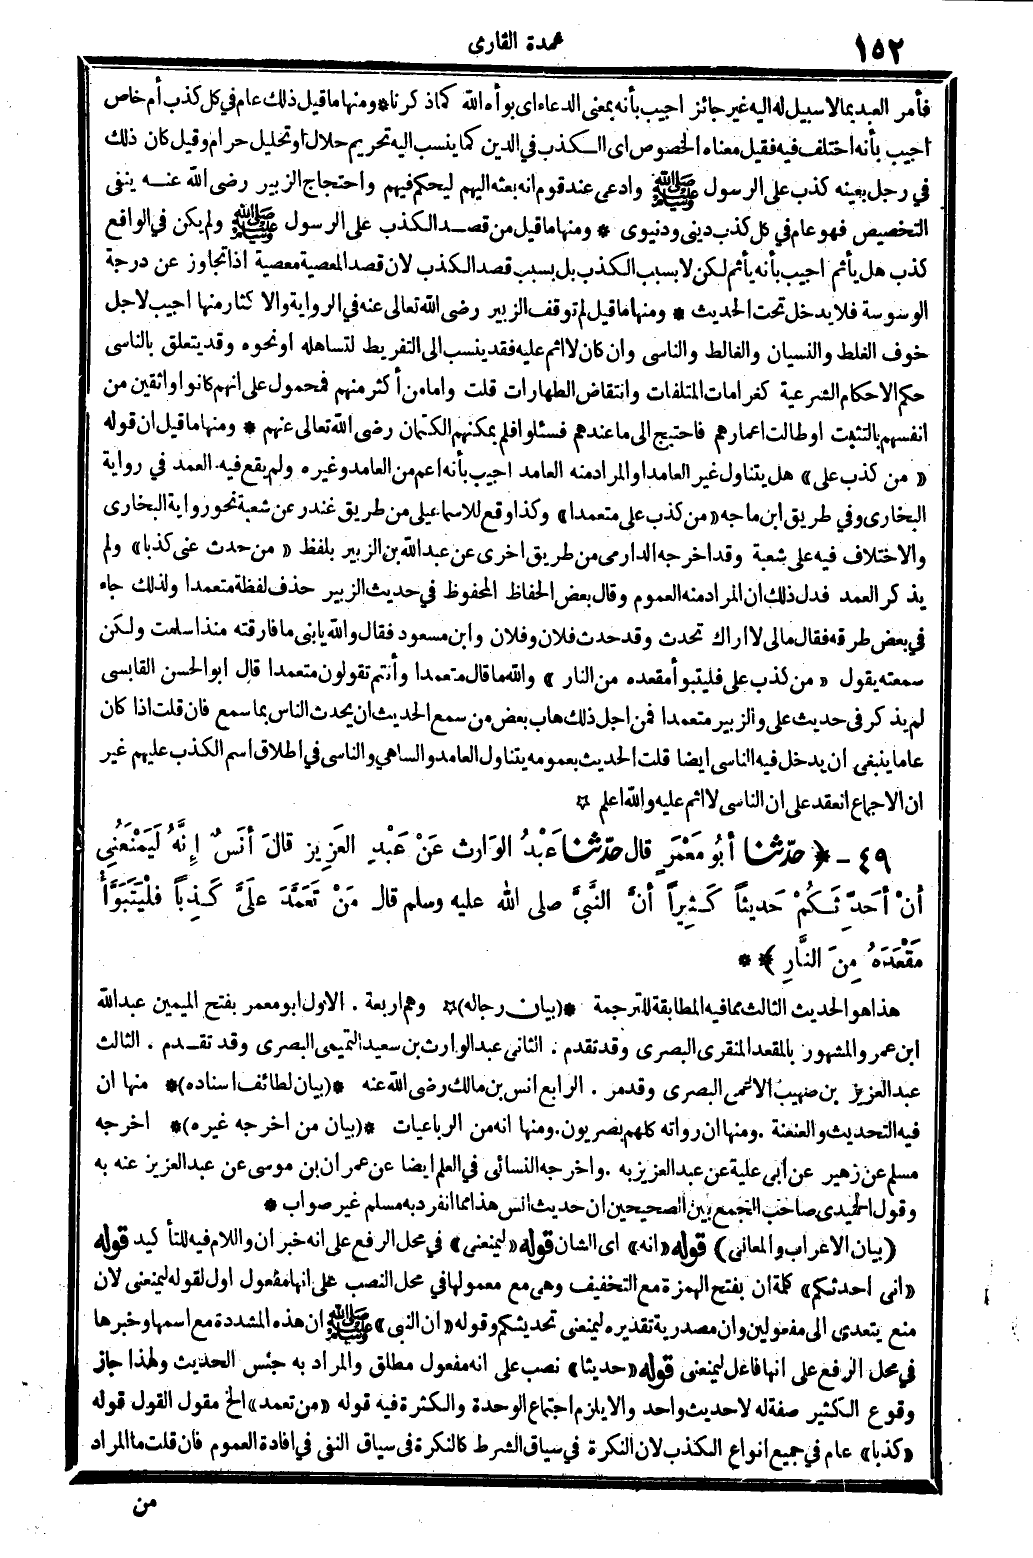 ١٥٢
عمدة القارى
فأمر العبد بما لا سبيل له اليه غير جائز اجيب بأنه بمعنى الدعاء اى بوأه الله كما ذكرنا * ومنها ما قيل ذلك عام في كل كذب أم خاص
اجيب بأنه اختلف فيه فقيل معناه الخصوص اى الكذب في الدين كما ينسب اليه تحريم حلال او تحليل حرام وقيل كان ذلك
في رجل بعينه كذب على الرسول ﷺ وادعى عند قوم انه بعثه اليهم ليحكم فيهم واحتجاج الزبير رضى الله عنه ينفى
التخصيص فهو عام في كل كذب دينى ودنيوى * ومنها ما قيل من قصد الكذب على الرسول ﷺ ولم يكن في الواقع
كذب هل يأثم اجيب بأنه يأثم لكن لا بسبب الكذب بل بسبب قصد الكذب لان قصد المعصية معصية اذا تجاوز عن درجة
الوسوسة فلا يدخل تحت الحديث * ومنها ما قيل لم توقف الزبير رضى الله تعالى عنه في الرواية والا كثار منها اجيب لاجل
خوف الغلط والنسيان والغالط والناسى وان كان لا اثم عليه فقد ينسب الى التفريط لتساهله او نحوه وقد يتعلق بالناسى
حكم الاحكام الشرعية كغرامات المتلفات وانتقاض الطهارات قلت واما من أكثر منهم فمحمول على انهم كانوا واثقين من
انفسهم بالتثبت او طالت اعمارهم فاحتيج الى ما عندهم فسئلوا فلم يمكنهم الكتمان رضى الله تعالى عنهم * ومنها ما قيل ان قوله
« من كذب على » هل يتناول غير العامد او المراد منه العامد اجيب بأنه اعم من العامد وغيره ولم يقع فيه العمد في رواية
البخارى وفي طريق ابن ماجه « من كذب على متعمدا » وكذا وقع للاسماعيلى من طريق غندر عن شعبة نحو رواية البخارى
والاختلاف فيه على شعبة وقد اخرجه الدارمى من طريق اخرى عن عبد الله بن الزبير بلفظ « من حدث عنى كذبا » ولم
يذكر العمد فدل ذلك ان المراد منه العموم وقال بعض الحفاظ المحفوظ في حديث الزبير حذف لفظة متعمدا ولذلك جاء
في بعض طرقه فقال مالى لا اراك تحدث وقد حدث فلان وفلان وابن مسعود فقال والله يا بنى ما فارقته منذ اسلمت ولكن
سمعته يقول « من كذب على فليتبوأ مقعده من النار » والله ما قال متعمدا وأنتم تقولون متعمدا قال ابو الحسن القابسى
لم يذكر في حديث على والزبير متعمدا فمن اجل ذلك هاب بعض من سمع الحديث ان يحدث الناس بما سمع فان قلت اذا كان
عاما ينبغى ان يدخل فيه الناسى ايضا قلت الحديث بعمومه يتناول العامد والساهي والناسى في اطلاق اسم الكذب عليهم غير
ان الاجماع انعقد على ان الناسى لا اثم عليه والله اعلم ☆
٤٩ - ﴿ حدّثنا أبُو مَعْمَرٍ قال حدّثنا عَبْدُ الوَارِثِ عَنْ عَبْدِ العَزِيزِ قالَ أنَسٌ إنَّهُ لَيَمْنَعُنِي
أنْ أُحَدِّثَكُمْ حَدِيثاً كَثِيراً أنَّ النَّبِيَّ صلى الله عليه وسلم قال مَنْ تَعَمَّدَ عَلَيَّ كَذِباً فلْيَتَبَوَّأْ
مَقْعَدَهُ مِنَ النَّارِ ﴾ *
هذا هو الحديث الثالث مما فيه المطابقة للترجمة * (بيان رجاله) ☆ وهم اربعة . الاول ابو معمر بفتح الميمين عبد الله
ابن عمرو المشهور بالمقعد المنقرى البصرى وقد تقدم . الثانى عبد الوارث بن سعيد التميمى البصرى وقد تقدم . الثالث
عبد العزيز بن صهيب الاعمى البصرى وقد مر . الرابع انس بن مالك رضى الله عنه * (بيان لطائف اسناده) * منها ان
فيه التحديث والعنعنة . ومنها ان رواته كلهم بصريون . ومنها انه من الرباعيات * (بيان من اخرجه غيره) * اخرجه
مسلم عن زهير عن أبى علية عن عبد العزيز به . واخرجه النسائى في العلم ايضا عن عمران بن موسى عن عبد العزيز عنه به
وقول الحميدى صاحب الجمع بين الصحيحين ان حديث انس هذا مما انفرد به مسلم غير صواب *
(بيان الاعراب والمعانى) قوله « انه » اى الشان قوله « ليمنعنى » في محل الرفع على انه خبر ان واللام فيه للتأكيد قوله
« انى احدثكم » كلمة ان بفتح الهمزة مع التخفيف وهى مع معمولها في محل النصب على انها مفعول اول لقوله ليمنعنى لان
منع يتعدى الى مفعولين وان مصدرية تقديره ليمنعنى تحديثكم وقوله « ان النبى » ﷺ ان هذه المشددة مع اسمها وخبرها
في محل الرفع على انها فاعل ليمنعنى قوله « حديثا » نصب على انه مفعول مطلق والمراد به جنس الحديث ولهذا جاز
وقوع الكثير صفة له لا حديث واحد والا يلزم اجتماع الوحدة والكثرة فيه قوله « من تعمد » الخ مقول القول قوله
« كذبا » عام في جميع انواع الكذب لان النكرة في سياق الشرط كالنكرة فى سياق النفى في افادة العموم فان قلت ما المراد
من